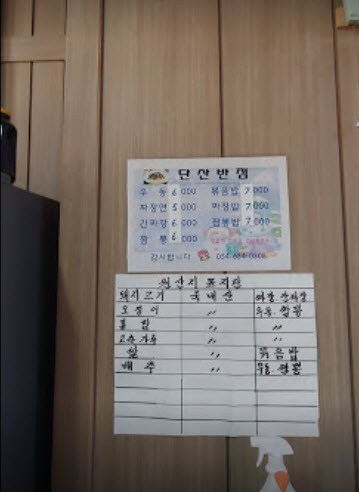 단산반점
우 동 6,000 볶음밥 7,000
짜장면 5,000 짜장밥 7,000
간짜장 6,000 잡뽕밥 7,000
짬 뽕 6,000
감사합니다
원산지 표지판
돼지고기 국내산 짜장 간짜장
오징어 〃 우동 짬뽕
홍 합 〃 〃
고추가루 〃 〃
쌀 〃 볶음밥
배추 〃 우동 짬뽕